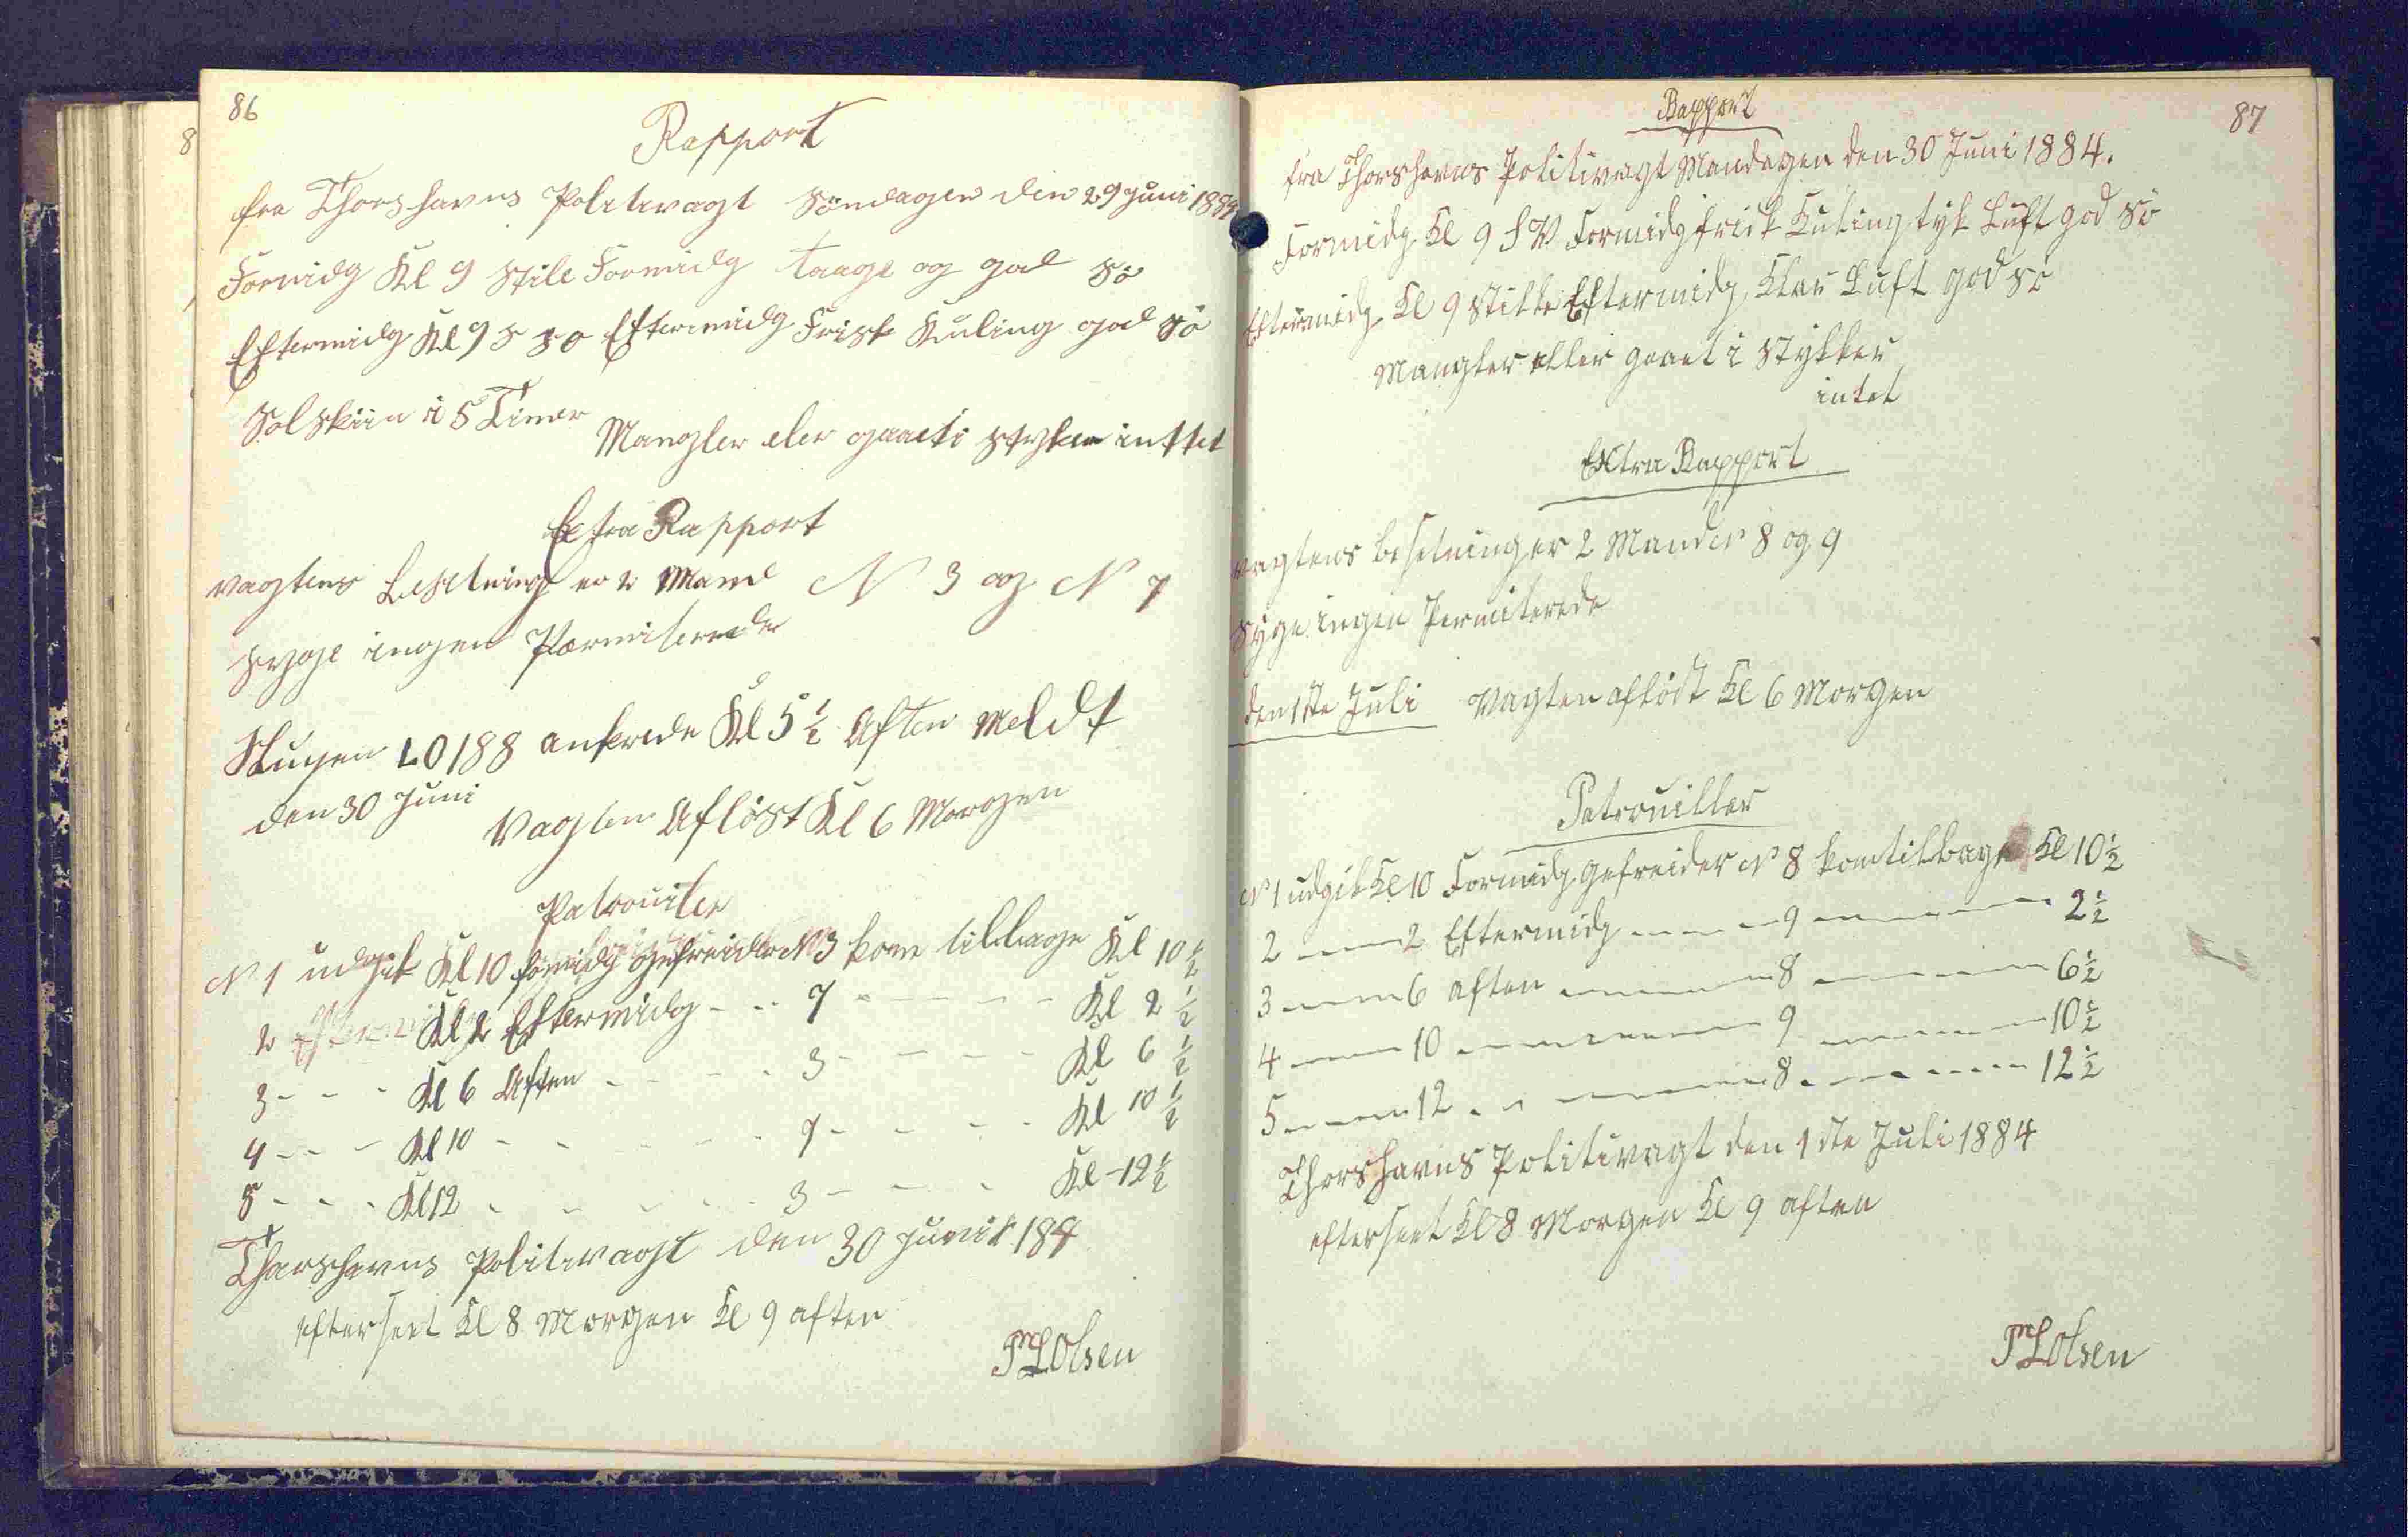 86
Rapport
fra Thorshavns Politivagt Söndagen den 29 Juni 1884
Formidg Kl 9 Stile Formidg taage og god Sö
Eftermidg Kl 9 S so Eftermidg Frisk Kuling god Sö
Solskiin i 5 Timer
Mangler eler gaaet i styker inttet
Extra Rapport
Vagtens Besetning er 2 Mand N 3 og N 7
syge ingen Permiterede
Slupen LO188 ankrede Kl 5 ½ Aften Meldt
den 30 Juni
Vagten Aflöst Kl 6 Morgen
Patrouiler
N 1 udgik Kl 10 formidg gefreider N 3 kom tilbage Kl 10 ½
2 Kl 2 Eftermidg - - 7 - - - - Kl 2 ½
3 - - - Kl 6 Aften - - - - 3 - - - - Kl 6 ½
4 - - - Kl 10 - - - - - 7 - - - - Kl 10 ½
5 - - - Kl 12 - - - - - 3 - - - Kl - 12 ½
Thorshavns Politivagt den 30 Juni 184
efterseet Kl 8 Morgen Kl 9 aften
Olsen
87
Rapport
fra Thorshavns Politivagt Mandagen den 30 Juni 1884.
Formidg Kl 9 SV Formidg frisk Kuling tyk Luft god Sö
Eftermidg Kl 9 Stille Eftermidg Klar Luft god Sö
Mangler eller gaaet i Stykker
intet
Extra Rapport
Vagtens Besetning er 2 Mand N 8 og 9
Syge ingen Permiterede
den 1ste Juli Vagten aflöst Kl 6 Morgen
Patrouiller
N 1 udgik Kl 10 Formidg Gefreider N 8 kom tilbage Kl 10 ½
2 - - - 2 Eftermidg - - - - 9 - - - - 2 ½
3 - - - 6 aften - - - - 8 - - - - 6 ½
4 - - - 10 - - - - 9 - - - - 10 ½
5 - - - 12 - - - - 8 - - - - 12 ½
Thorshavns Politivagt den 1ste Juli 1884
efterseet Kl 8 Morgen Kl 9 aften
Olsen